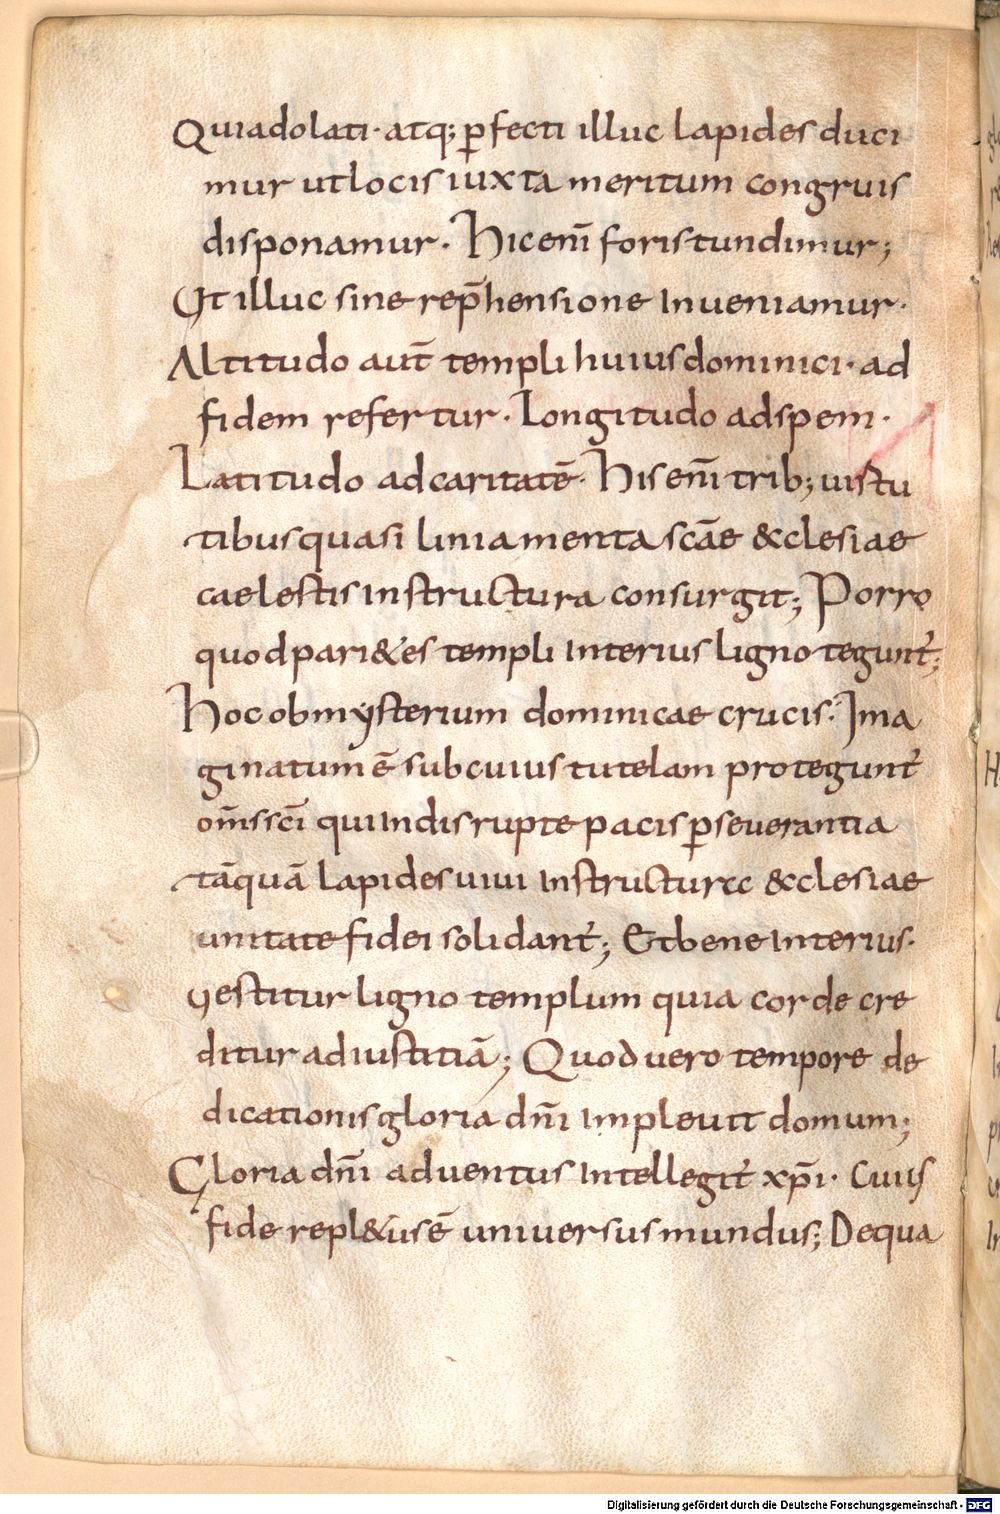 Quia dolati · atq; p̄fecti illuc lapides duci
mur ut locis iuxta meritum congruis
disponamur . hic eni̅ foris tundimur ;
Et illuc sine rep̄hensione inveniamur ·
Altitudo aut̄ templi huius dominici · ad
fidem refertur · Longitudo ad spem ·
Latitudo ad caritatē · his eni̅ trib; uistu
tibus quasi liniamenta scāe &clesiae
caelestis instructura consurgit ; Porro
quod pari&es templi interius ligno tegunt᾽ ;
hoc ob mysterium dominicae crucis · Ima
ginatum ē sub cuius tutelam protegunt᾽
om̄s sc̄i qui indisrupte pacis p̄severantia
tāquā lapides uiui instructurę &clesiae
unitate fidei solidant᾽ ; Et bene interius ·
vestitur ligno templum quia corde cre
ditur ad iustitiā ; Quod vero tempore de
dicationis gloria dn̄i implevit domum ;
Gloria dn̄i adventus intellegit᾽ xp̄i · Cuius
fide repl&us ē universus mundus ; De qua
Digitalisierung gefördert durch die Deutsche Forschungsgemeinschaft - DFG